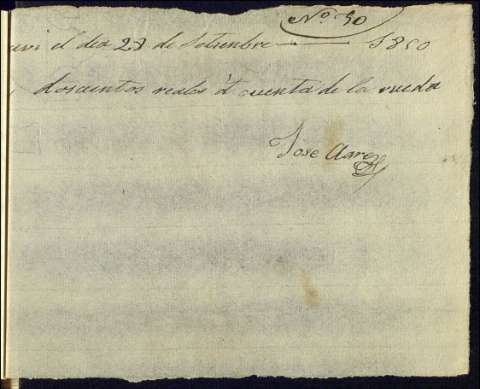 Nº 30
el dia 23 de Setienbre 1850
dosientos reales á cuenta de la rueda
Jose